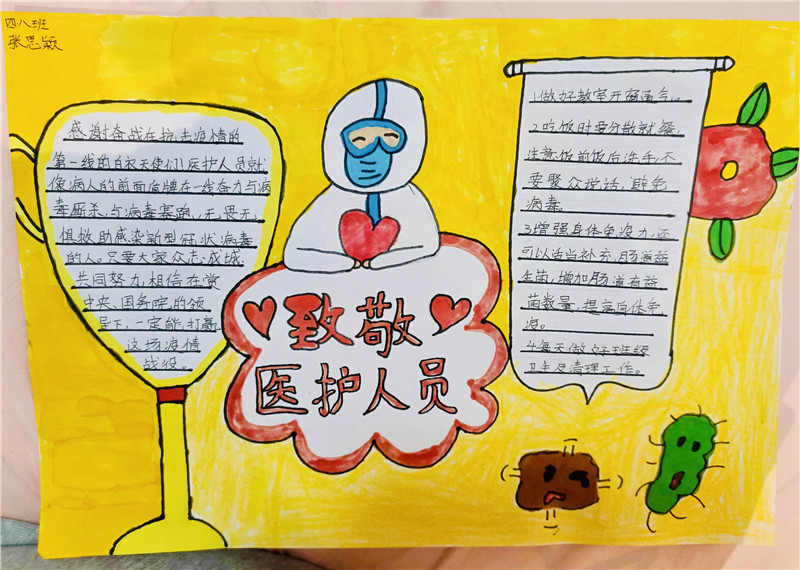 四.八班
张思颖
感谢奋战在抗击疫情的
第一线的白衣天使们!医护人员就
像病人的前面盾牌在一线奋力与病
毒厮杀,与病毒赛跑,无畏无
惧救助感染新型冠状病毒
的人。只要大家众志成城
共同努力,相信在党
中央、国务院的领
导下,一定能,打赢
这场疫情
战役。
致敬
医护人员
1.做好教室开窗通气。
2.吃饭时要分散就餐,
注意饭前饭后洗手,不
要聚众说话,避免
病毒。
3增强身体免疫力,还
可以适当补充,肠道益
生菌,增加肠道有益
菌数量,提高自体免
疫。
4每天做好班级
卫生及清理工作。